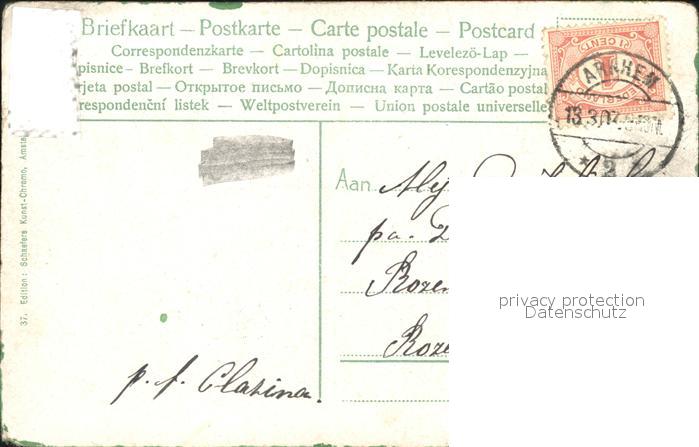 Briefkaart — Postkarte — Carte postale — Postcard
Correspondenzkarte — Cartolina postale — Levelezö-Lap —
pisnice — Brefkort — Brevkort — Dopisnica — Karta Korespondenzyjna
rjeta postal — Открытое письмо — Дописна карта — Cartão postal
respondenční listek — Weltpostverein — Union postale universelle
1 CENT
ARNHEM
37. Edition: Schaefers Kunst-Chromo, Amsta
Aan
pa.
Rozen
privacy protection
Datenschutz
Roze
p. f. Clasina.